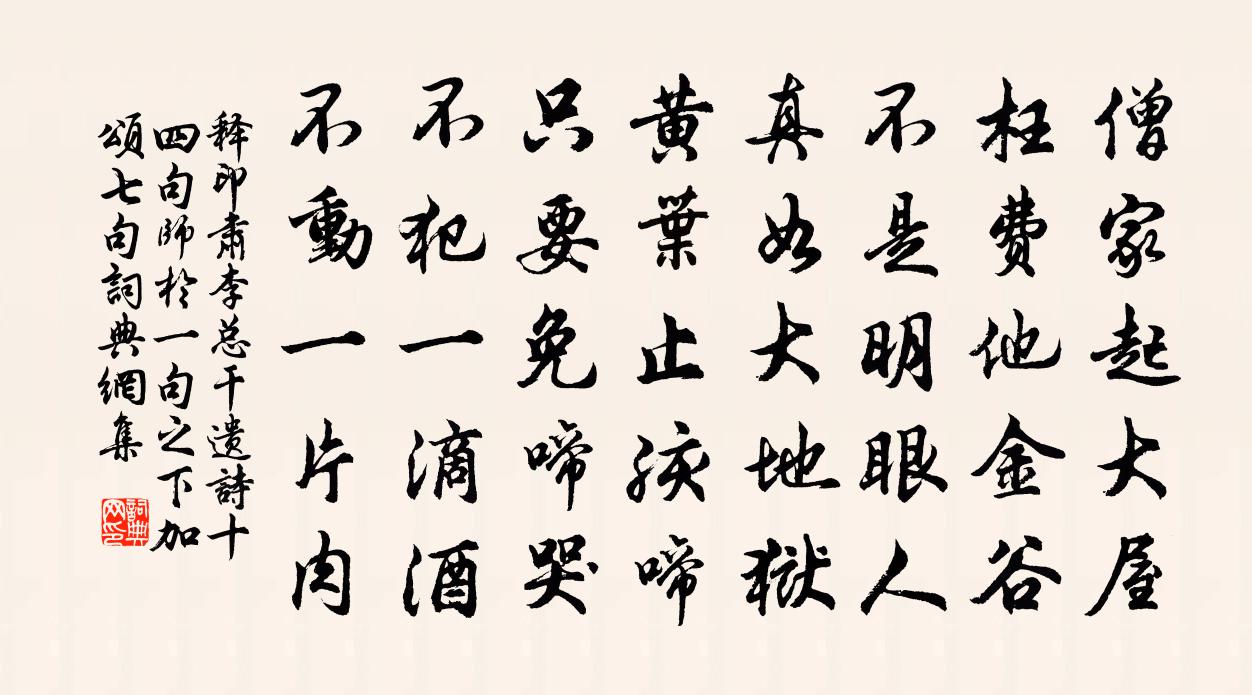 僧家起大屋
枉費他金谷
不是明眼人
真如大地獄
黃葉止孩啼
只要免啼哭
不犯一滴酒
不動一片肉
释印肅李总干遗詩十
四句師於一句之下加
頌七句詞典網集
詞典
网印